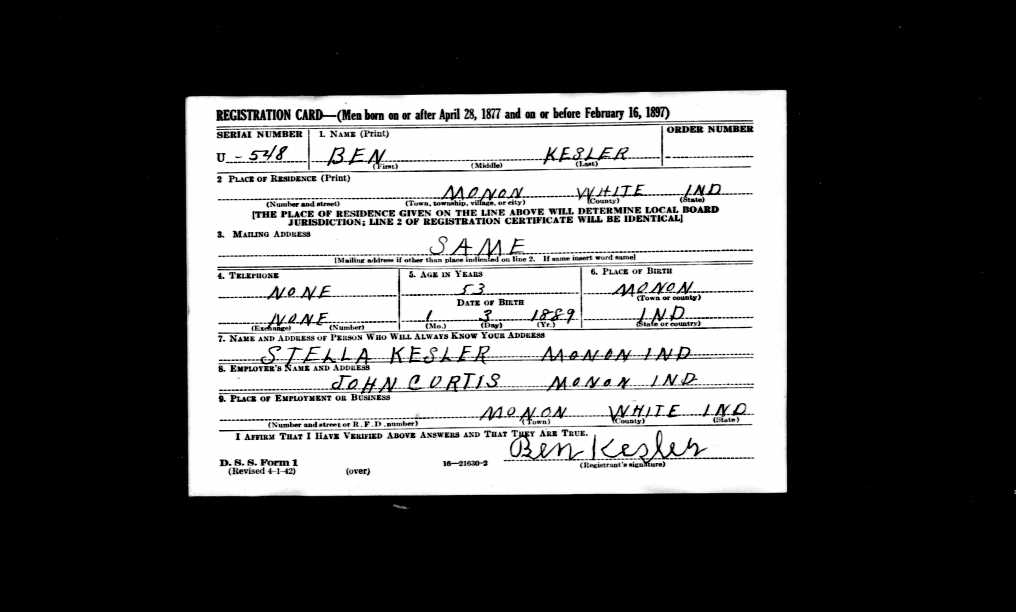 REGISTRATION CARD—(Men born on or after April 28, 1877 and on or before February 16, 1897)
SERIAL NUMBER 1. NAME (Print) ORDER NUMBER
U - 548 BEN KESLER
(First) (Middle) (Last)
2 PLACE OF RESIDENCE (Print)
MONON WHITE IND
(Number and street) (Town, township, village, or city) (County) (State)
[THE PLACE OF RESIDENCE GIVEN ON THE LINE ABOVE WILL DETERMINE LOCAL BOARD
JURISDICTION; LINE 2 OF REGISTRATION CERTIFICATE WILL BE IDENTICAL]
3. MAILING ADDRESS
SAME
[Mailing address if other than place indicated on line 2. If same insert word same]
4. TELEPHONE 5. AGE IN YEARS 6. PLACE OF BIRTH
NONE 53 MONON
DATE OF BIRTH (Town or county)
NONE 1 3 1889 IND
(Exchange) (Number) (Mo.) (Day) (Yr.) (State or country)
7. NAME AND ADDRESS OF PERSON WHO WILL ALWAYS KNOW YOUR ADDRESS
STELLA KESLER MONON IND
8. EMPLOYER'S NAME AND ADDRESS
JOHN CURTIS MONON IND
9. PLACE OF EMPLOYMENT OR BUSINESS
MONON WHITE IND
(Number and street or R. F. D. number) (Town) (County) (State)
I AFFIRM THAT I HAVE VERIFIED ABOVE ANSWERS AND THAT THEY ARE TRUE.
Ben Kesler
D. S. S. Form 1
(Revised 4-1-42) (over) 16—21630-2 (Registrant's signature)